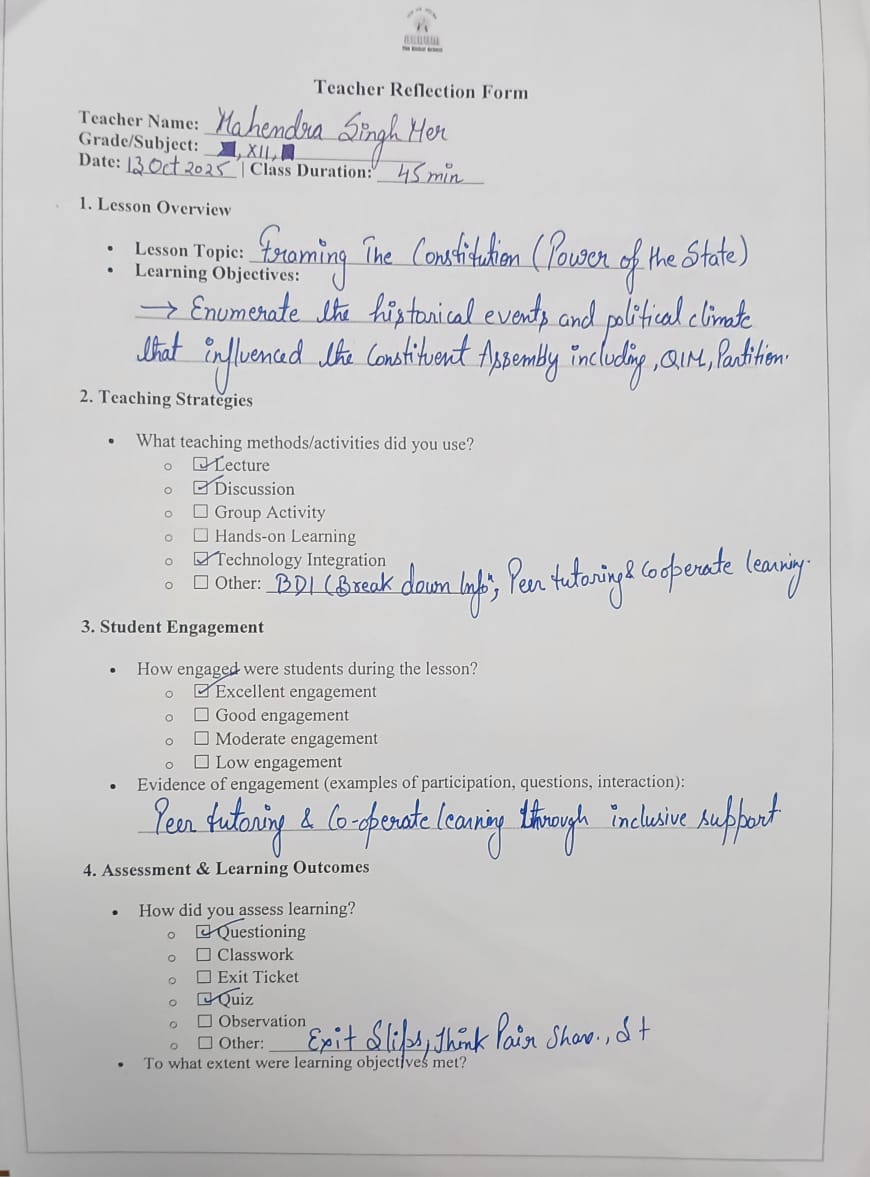 Teacher Reflection Form
Teacher Name: Mahendra Singh Mer
Grade/Subject: , XII,
Date: 13 Oct 2025 | Class Duration: 45 min
1. Lesson Overview
• Lesson Topic: Framing The Constitution (Power of the State)
• Learning Objectives:
→ Enumerate the historical events and political climate
that influenced the Constituent Assembly including, QIM, Partition.
2. Teaching Strategies
• What teaching methods/activities did you use?
○ ☑ Lecture
○ ☑ Discussion
○ ☐ Group Activity
○ ☐ Hands-on Learning
○ ☑ Technology Integration
○ ☐ Other: BDI (Break down Info", Peer tutoring & Cooperate learning.
3. Student Engagement
• How engaged were students during the lesson?
○ ☑ Excellent engagement
○ ☐ Good engagement
○ ☐ Moderate engagement
○ ☐ Low engagement
• Evidence of engagement (examples of participation, questions, interaction):
Peer tutoring & Co-operate learning through inclusive support
4. Assessment & Learning Outcomes
• How did you assess learning?
○ ☑ Questioning
○ ☐ Classwork
○ ☐ Exit Ticket
○ ☑ Quiz
○ ☐ Observation
○ ☐ Other: Exit Slips, Think Pair Share., S t
• To what extent were learning objectives met?